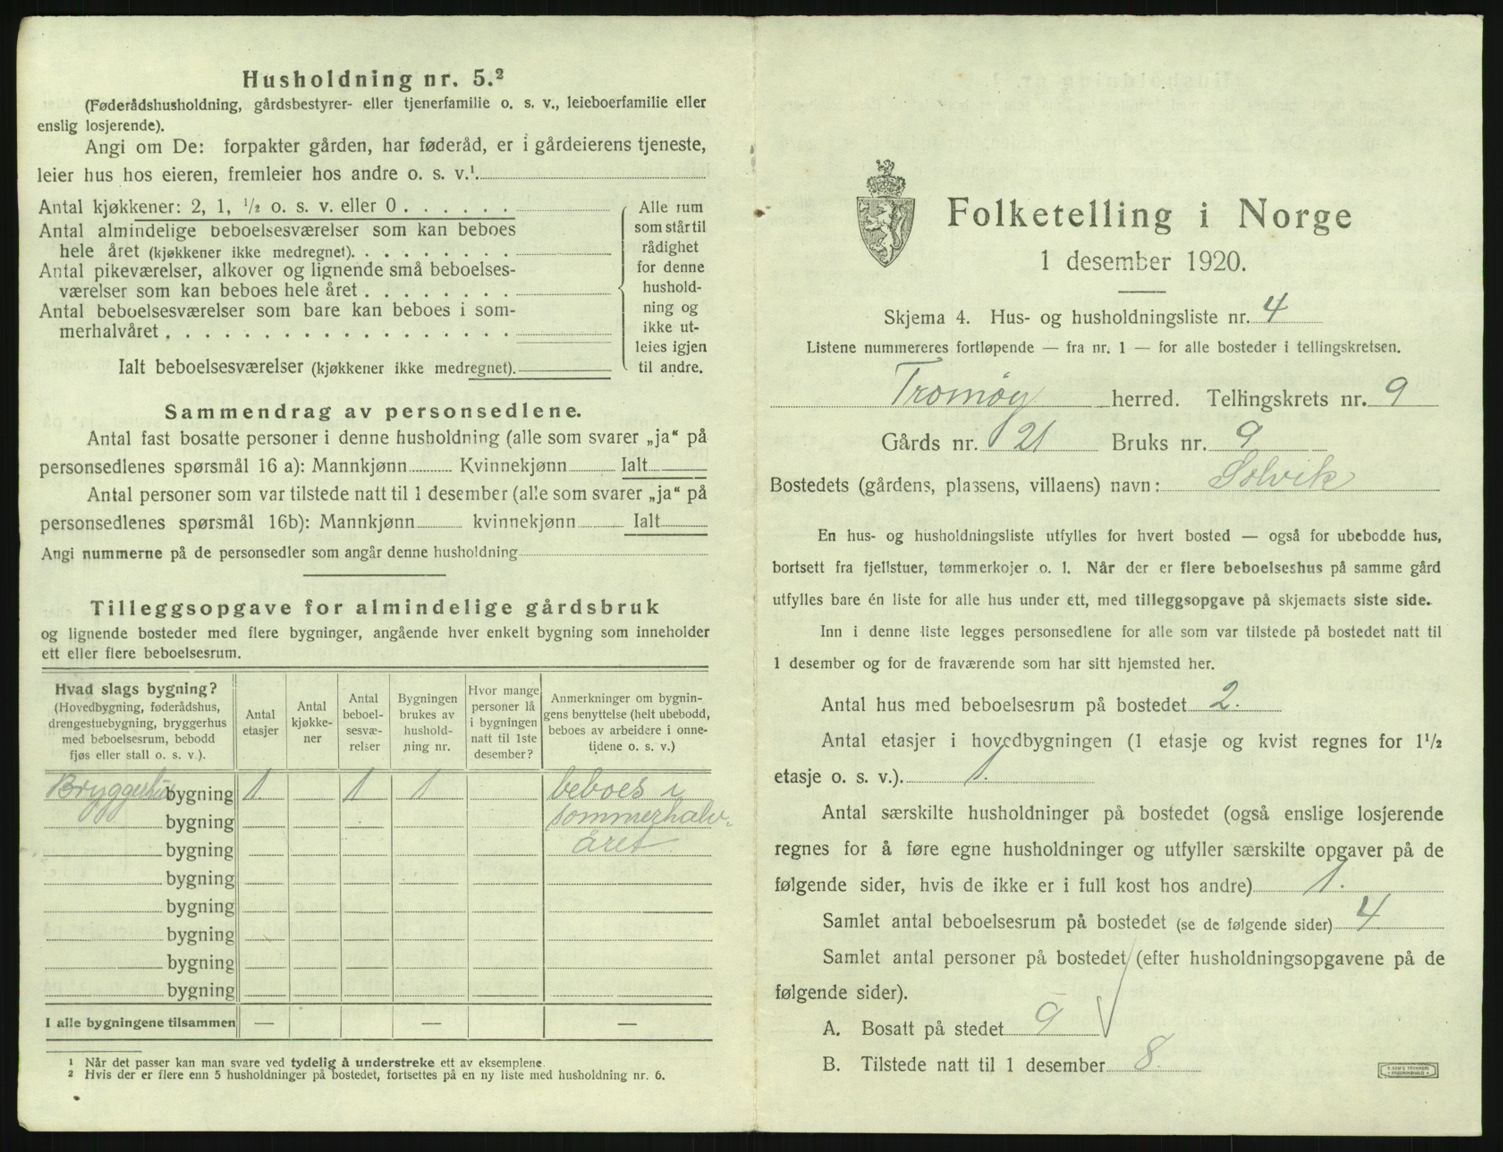 Husholdning nr. 5.²
(Føderådshusholdning, gårdsbestyrer- eller tjenerfamilie o. s. v., leieboerfamilie eller
enslig losjerende).
Angi om De: forpakter gården, har føderåd, er i gårdeierens tjeneste,
leier hus hos eieren, fremleier hos andre o. s. v.¹.
Antal kjøkkener: 2, 1, ½ o. s. v. eller 0 . . . . . .
Antal almindelige beboelsesværelser som kan beboes
hele året (kjøkkener ikke medregnet). . . . . . . . .
Antal pikeværelser, alkover og lignende små beboelses-
værelser som kan beboes hele året . . . . . . . .
Antal beboelsesværelser som bare kan beboes i som-
merhalvåret . . . . . . . . . . . . . . . . . .
Ialt beboelsesværelser (kjøkkener ikke medregnet).
Alle rum
som står til
rådighet
for denne
hushold-
ning og
ikke ut-
leies igjen
til andre.
Sammendrag av personsedlene.
Antal fast bosatte personer i denne husholdning (alle som svarer „ja“ på
personsedlenes spørsmål 16 a): Mannkjønn Kvinnekjønn Ialt
Antal personer som var tilstede natt til 1 desember (alle som svarer „ja“ på
personsedlenes spørsmål 16b): Mannkjønn kvinnekjønn Ialt
Angi nummerne på de personsedler som angår denne husholdning
Tilleggsopgave for almindelige gårdsbruk
og lignende bosteder med flere bygninger, angående hver enkelt bygning som inneholder
ett eller flere beboelsesrum.
Hvad slags bygning?
(Hovedbygning, føderådshus,
drengestuebygning, bryggerhus
med beboelsesrum, bebodd
fjøs eller stall o. s. v.).
Antal
etasjer
Antal
kjøkke-
ner
Antal
beboel-
sesvæ-
relser
Bygningen
brukes av
hushold-
ning nr.
Hvor mange
personer lå
i bygningen
natt til 1ste
desember?
Anmerkninger om bygnin-
gens benyttelse (helt ubebodd,
beboes av arbeidere i onne-
tidene o. s. v.)
Bryggehus bygning 1 1 1 beboes i
bygning sommerhalv-
bygning året
bygning
bygning
bygning
bygning
bygning
I alle bygningene tilsammen — — —
¹ Når det passer kan man svare ved tydelig å understreke ett av eksemplene.
² Hvis der er flere enn 5 husholdninger på bostedet, fortsettes på en ny liste med husholdning nr. 6.
Folketelling i Norge
1 desember 1920.
Skjema 4. Hus- og husholdningsliste nr. 4
Listene nummereres fortløpende — fra nr. 1 — for alle bosteder i tellingskretsen.
Tromøy herred. Tellingskrets nr. 9
Gårds nr. 21 Bruks nr. 9
Bostedets (gårdens, plassens, villaens) navn: Solvik
En hus- og husholdningsliste utfylles for hvert bosted — også for ubebodde hus,
bortsett fra fjellstuer, tømmerkojer o. l. Når der er flere beboelseshus på samme gård
utfylles bare én liste for alle hus under ett, med tilleggsopgave på skjemaets siste side.
Inn i denne liste legges personsedlene for alle som var tilstede på bostedet natt til
1 desember og for de fraværende som har sitt hjemsted her.
Antal hus med beboelsesrum på bostedet 2.
Antal etasjer i hovedbygningen (1 etasje og kvist regnes for 1½
etasje o. s. v.). 1.
Antal særskilte husholdninger på bostedet (også enslige losjerende
regnes for å føre egne husholdninger og utfyller særskilte opgaver på de
følgende sider, hvis de ikke er i full kost hos andre) 1.
Samlet antal beboelsesrum på bostedet (se de følgende sider) 4
Samlet antal personer på bostedet (efter husholdningsopgavene på de
følgende sider).
A. Bosatt på stedet 9
B. Tilstede natt til 1 desember 8